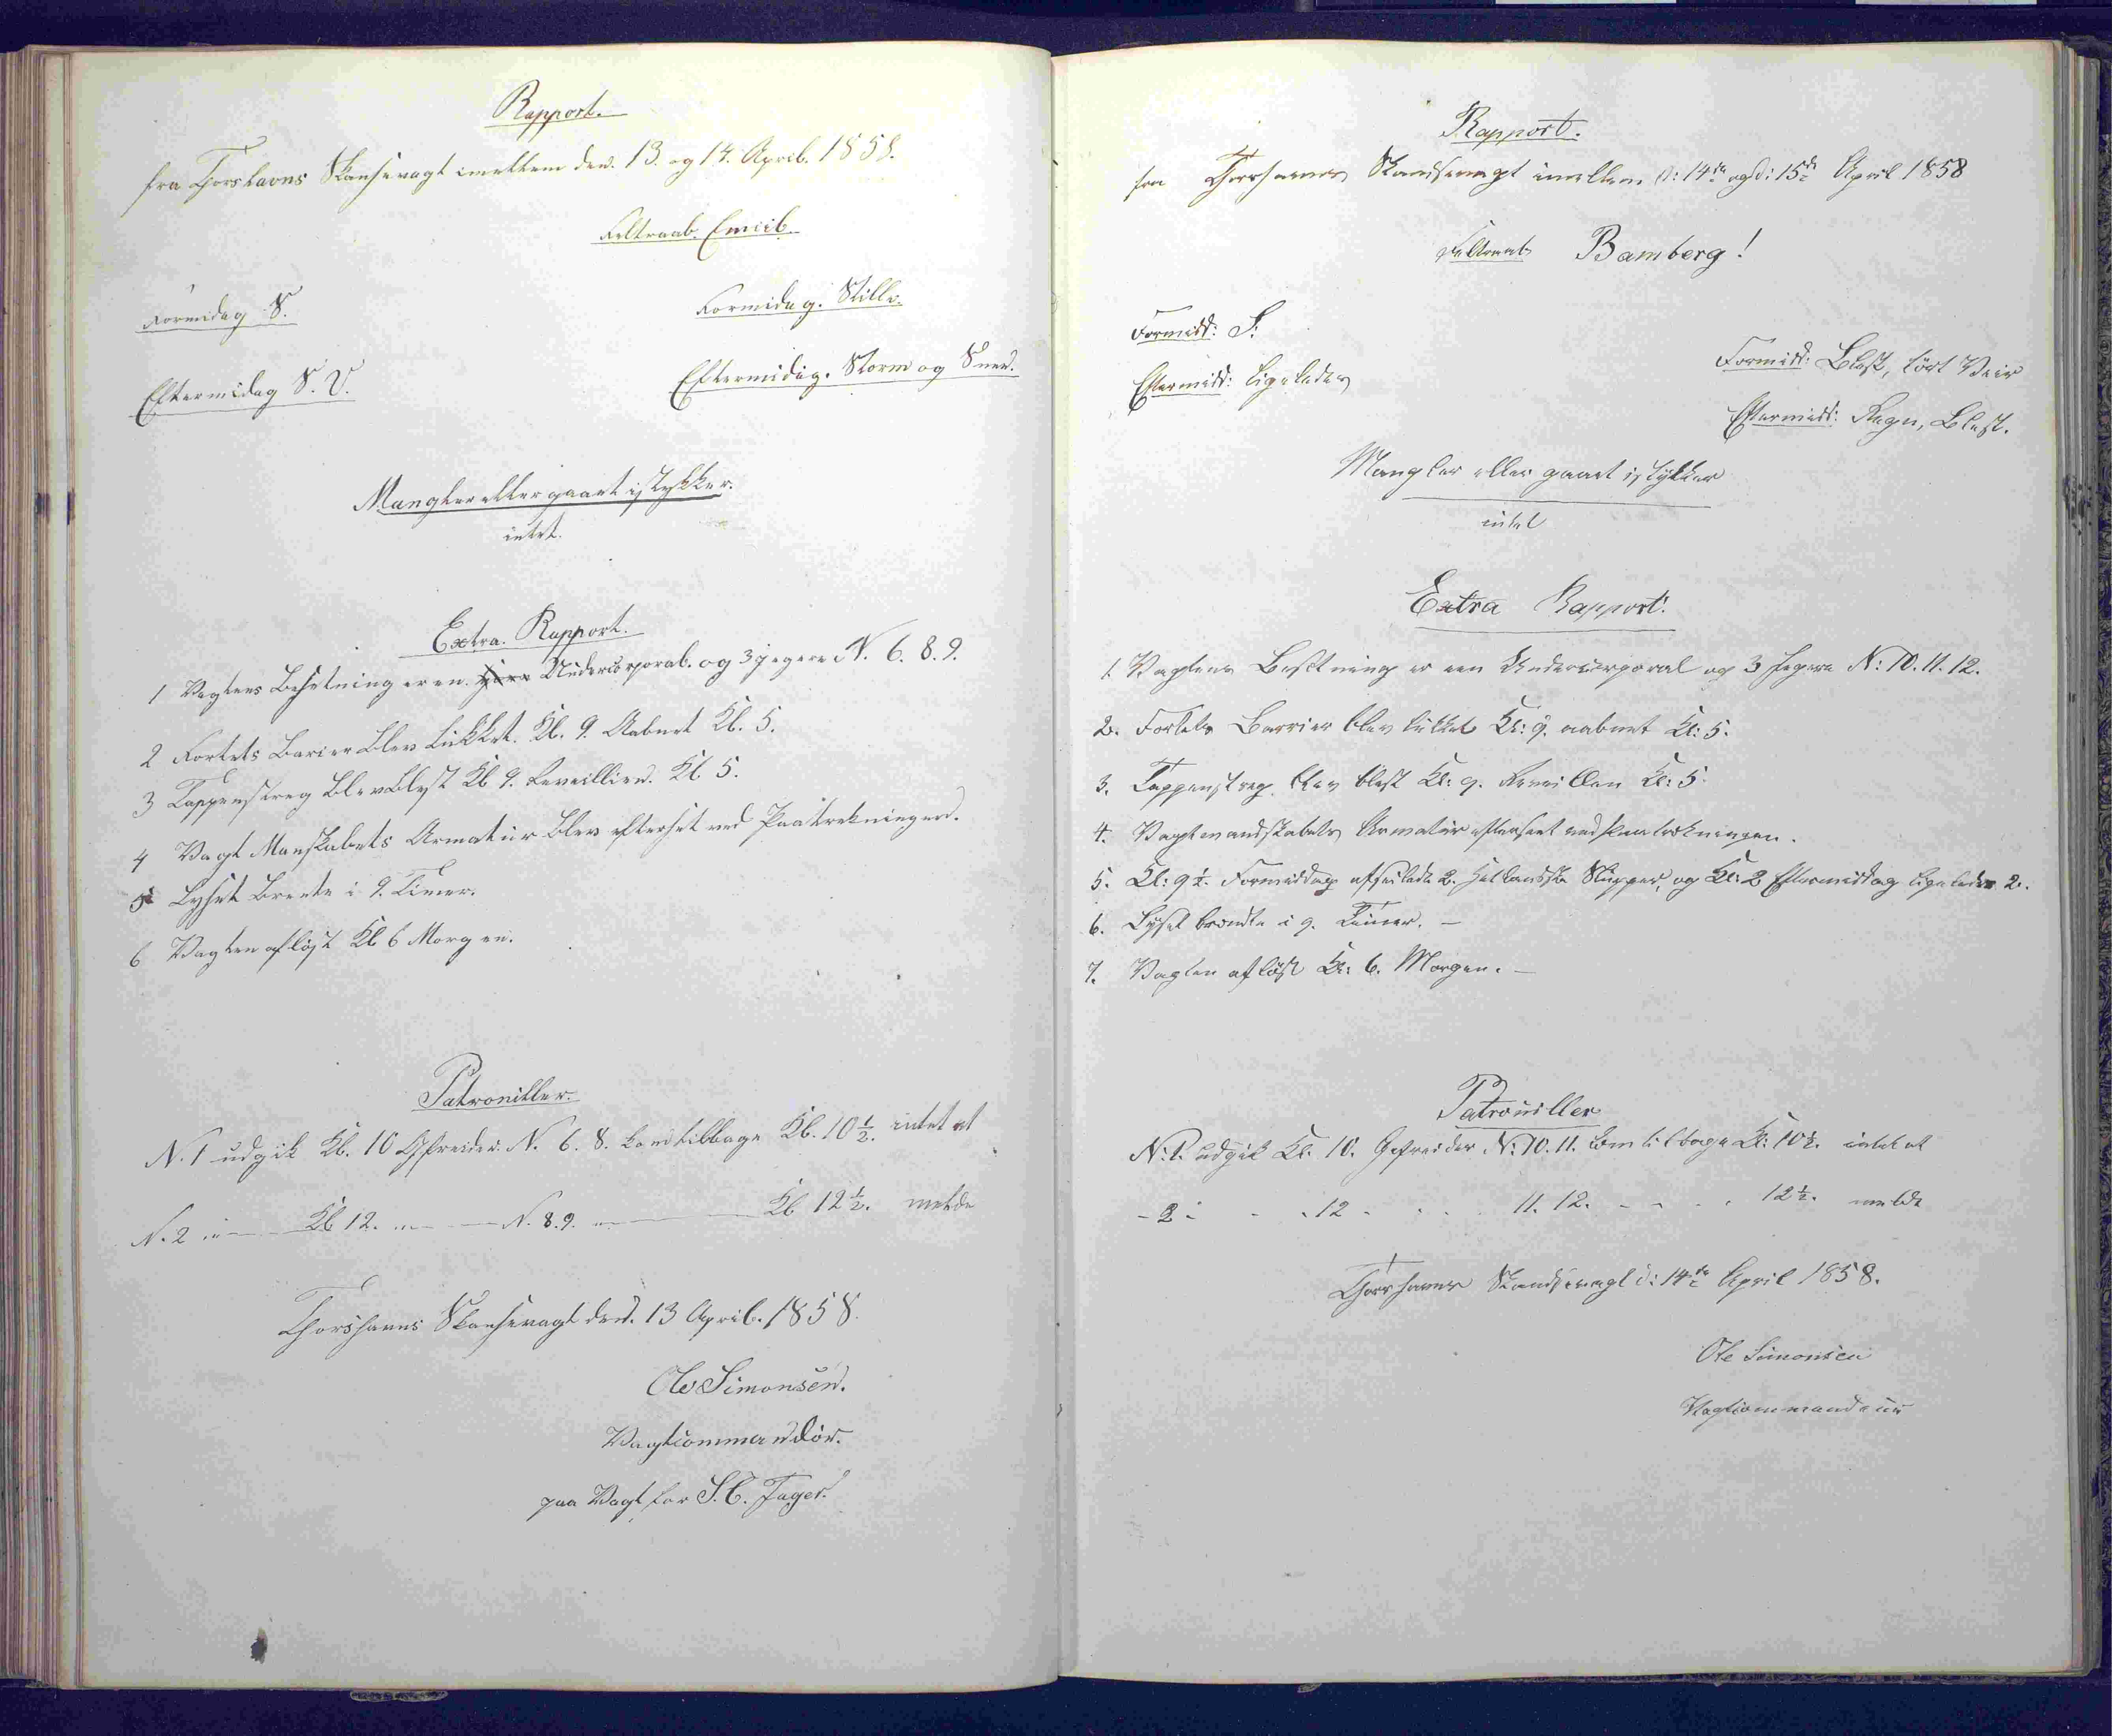 Rapport.
fra Thorshavns Skansevagt imellem den. 13. og 14. April. 1858.
Feltraab. Emiel.
Formidag S.
Formidag. Stille.
Eftermidag S. V.
Eftermidag. Storm og Sne.
Mangler eller gaaet istykker.
intet.
Extra. Rapport.
1 Vagtens Besetning er en Undercorporal. og 3 jegere N. 6. 8. 9.
2 Fortets Barier blev lukket. Kl. 9. Aabnet Kl. 5.
3 Tappenstreg blev blest Kl 9. Reveillien. Kl. 5.
4 Vagt Manskabets Armatur blev efterset ved Paatrekningen.
5 Lyset brente i 9. Timer.
6 Vagten afløst Kl 6 Morgen.
Patrouiller.
N. 1 udgik Kl. 10 Gefreider. N. 6. 8. kom tilbage Kl. 10 ½. intet at
N. 2 " — Kl 12. " — N. 8. 9. " — Kl 12 ½. melde
Thorshavns Skansevagt den. 13 April. 1858.
Ole Simonsen.
Vagtcommandør.
paa Vagt for S. C. Jager.
Rapport.
fra Thorshavns Skandsevagt imellem d: 14de og d: 15de April 1858
Feltraab Bamberg!
Formidd: S.
Eftermidd: ligeledes
Formidd: Blæst, tört Veir
Eftermidd: Regn, Blæst.
Mangler eller gaaet istykker
intet
Extra Rapport.
1. Vagtens Besetning er een Undercorporal og 3 Jegere N: 10. 11. 12.
2. Fortets Barrier blev lukket Kl: 9. aabnet Kl: 5.
3. Tappenstreg blev blest Kl: 9. Reveillen Kl: 5.
4. Vagtmandskabets Armatur efterseet ved paatrekningen.
5. Kl: 9½. Formiddag afseilede 2. Hollandske Slupper, og Kl: 2 Eftermiddag ligeledes 2.
6. Lyset brændte i 9. Timer. —
7. Vagten afløst Kl: 6. Morgen. —
Patrouiller
N: 1. udgik Kl. 10. Gefreider N: 10. 11. kom tilbage Kl: 10½. intet at
- 2 - - - 12 - - - 11. 12. - - - 12½. melde
Thorshavns Skandsevagt d: 14de April 1858.
Ole Simonsen
Vagtcommandeur